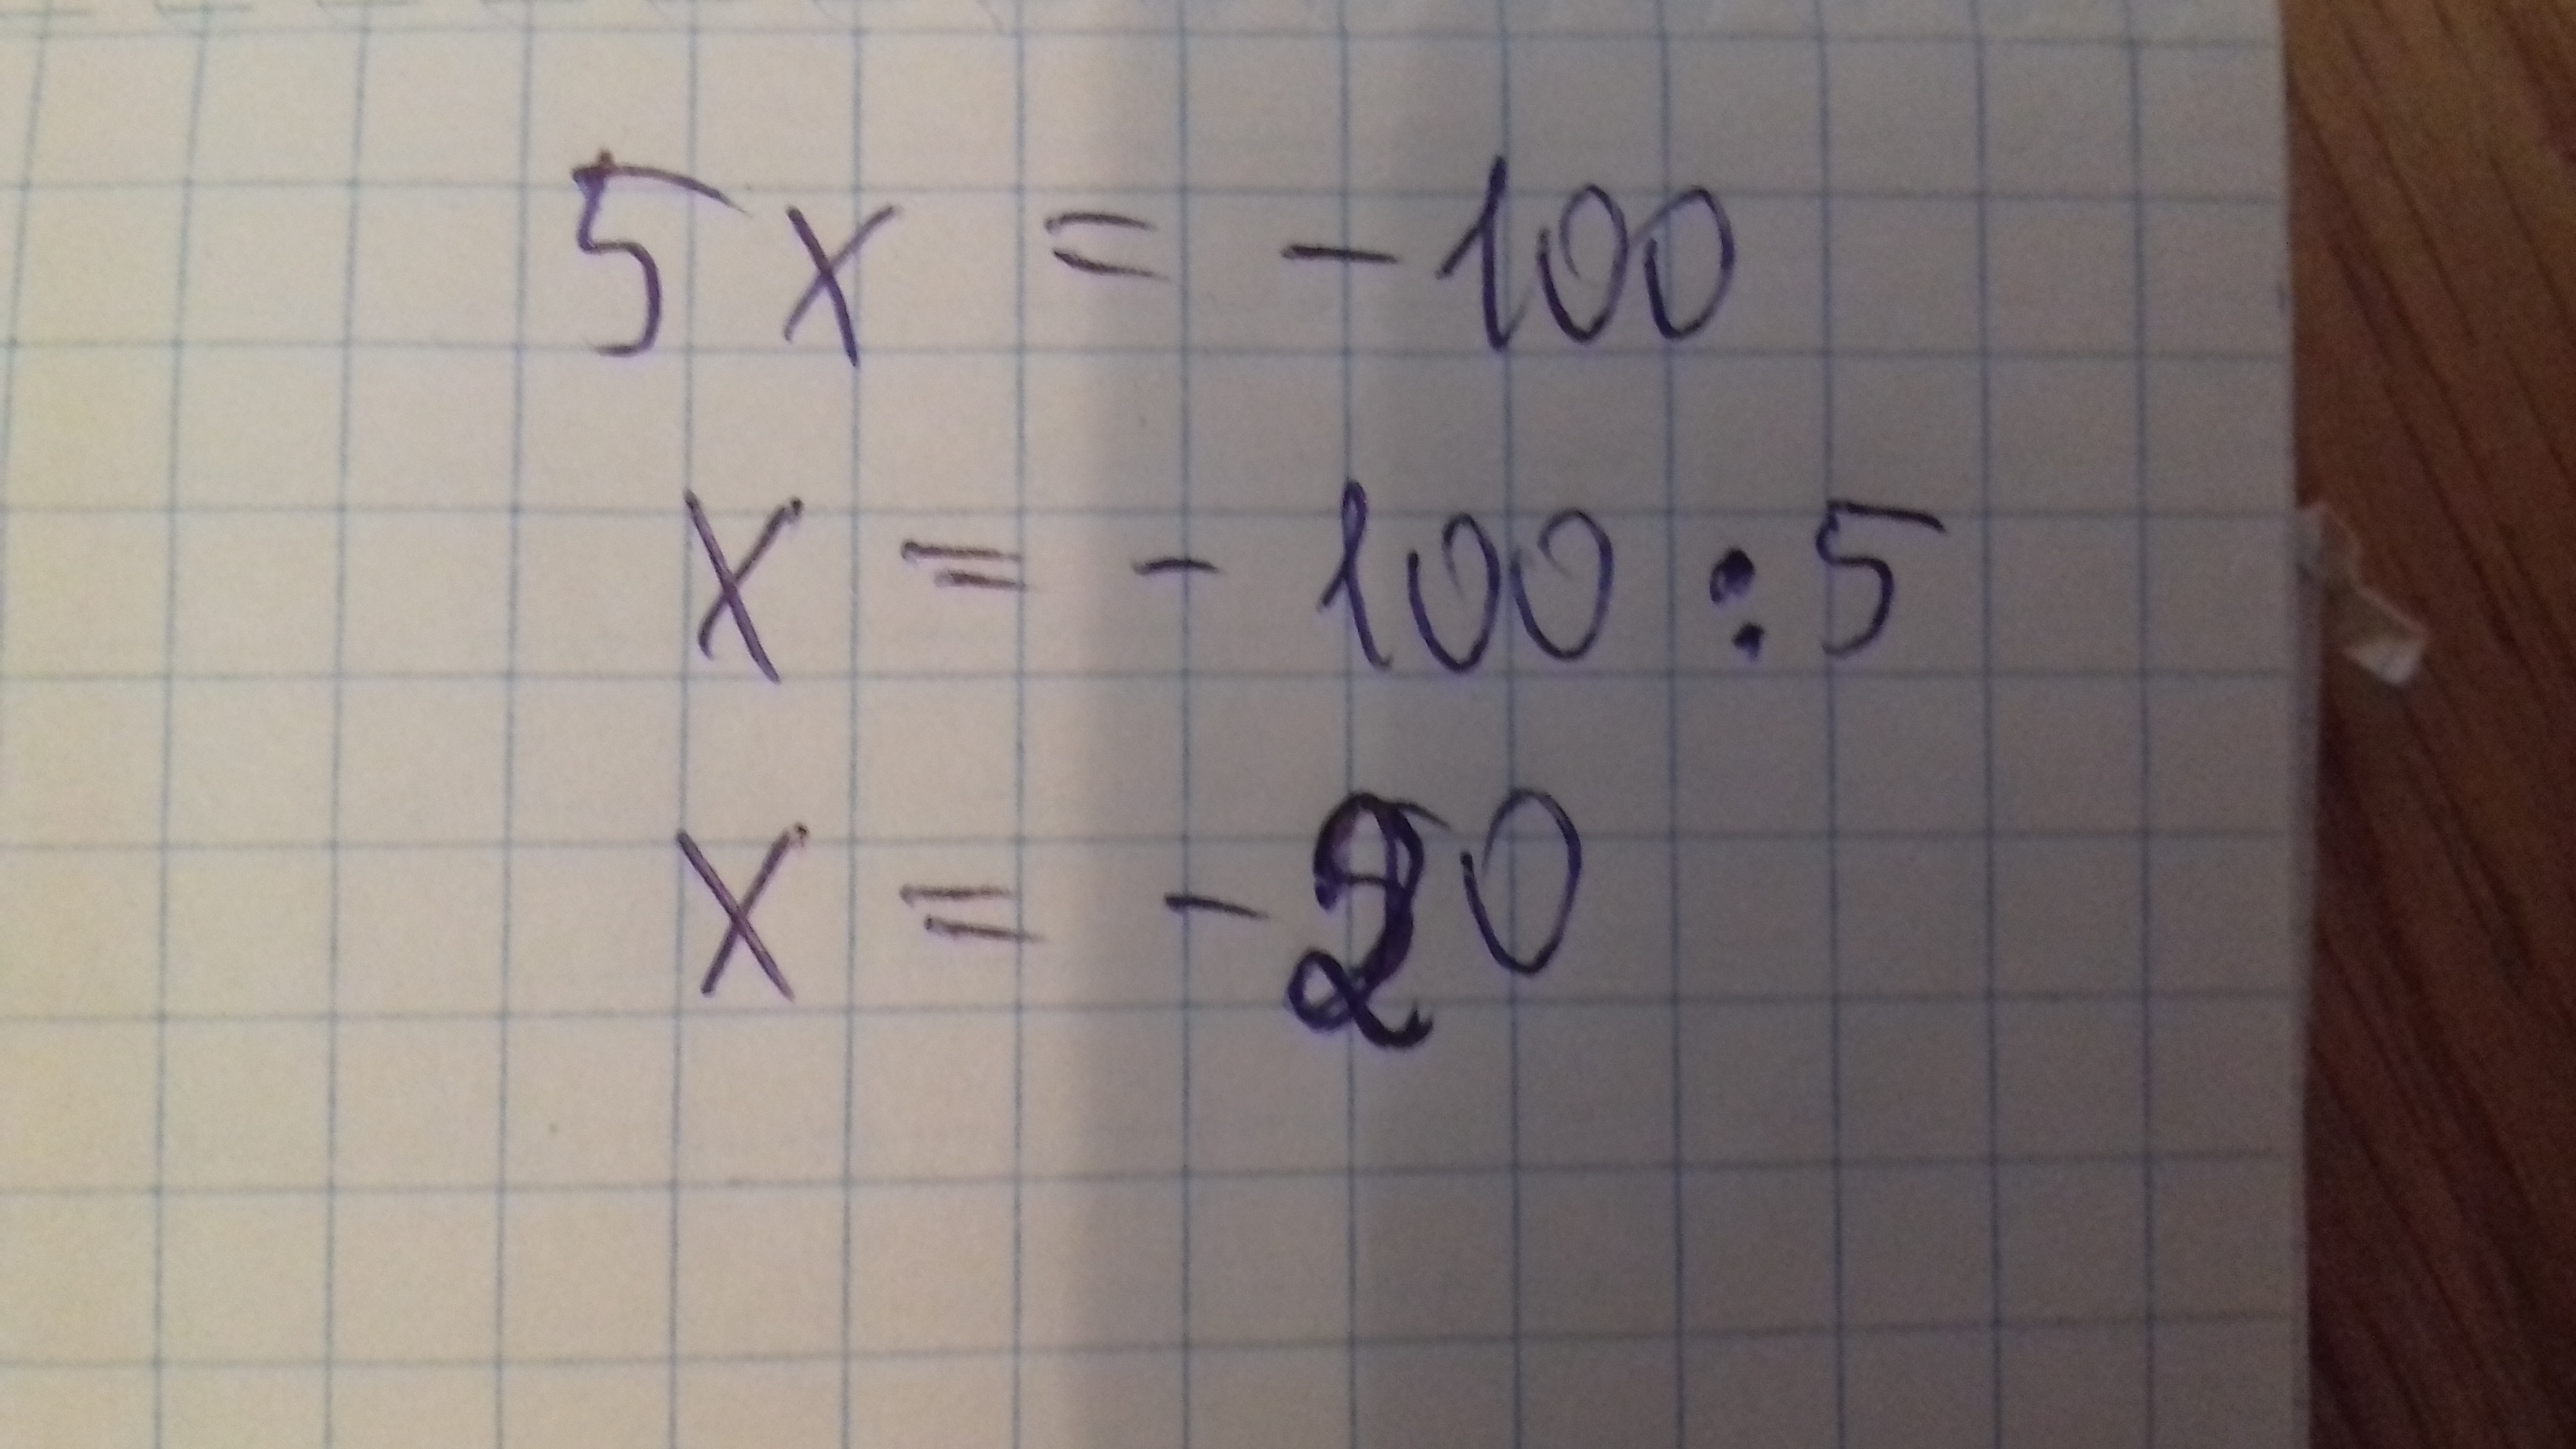 5x = -100
x = -100 : 5
x = -20